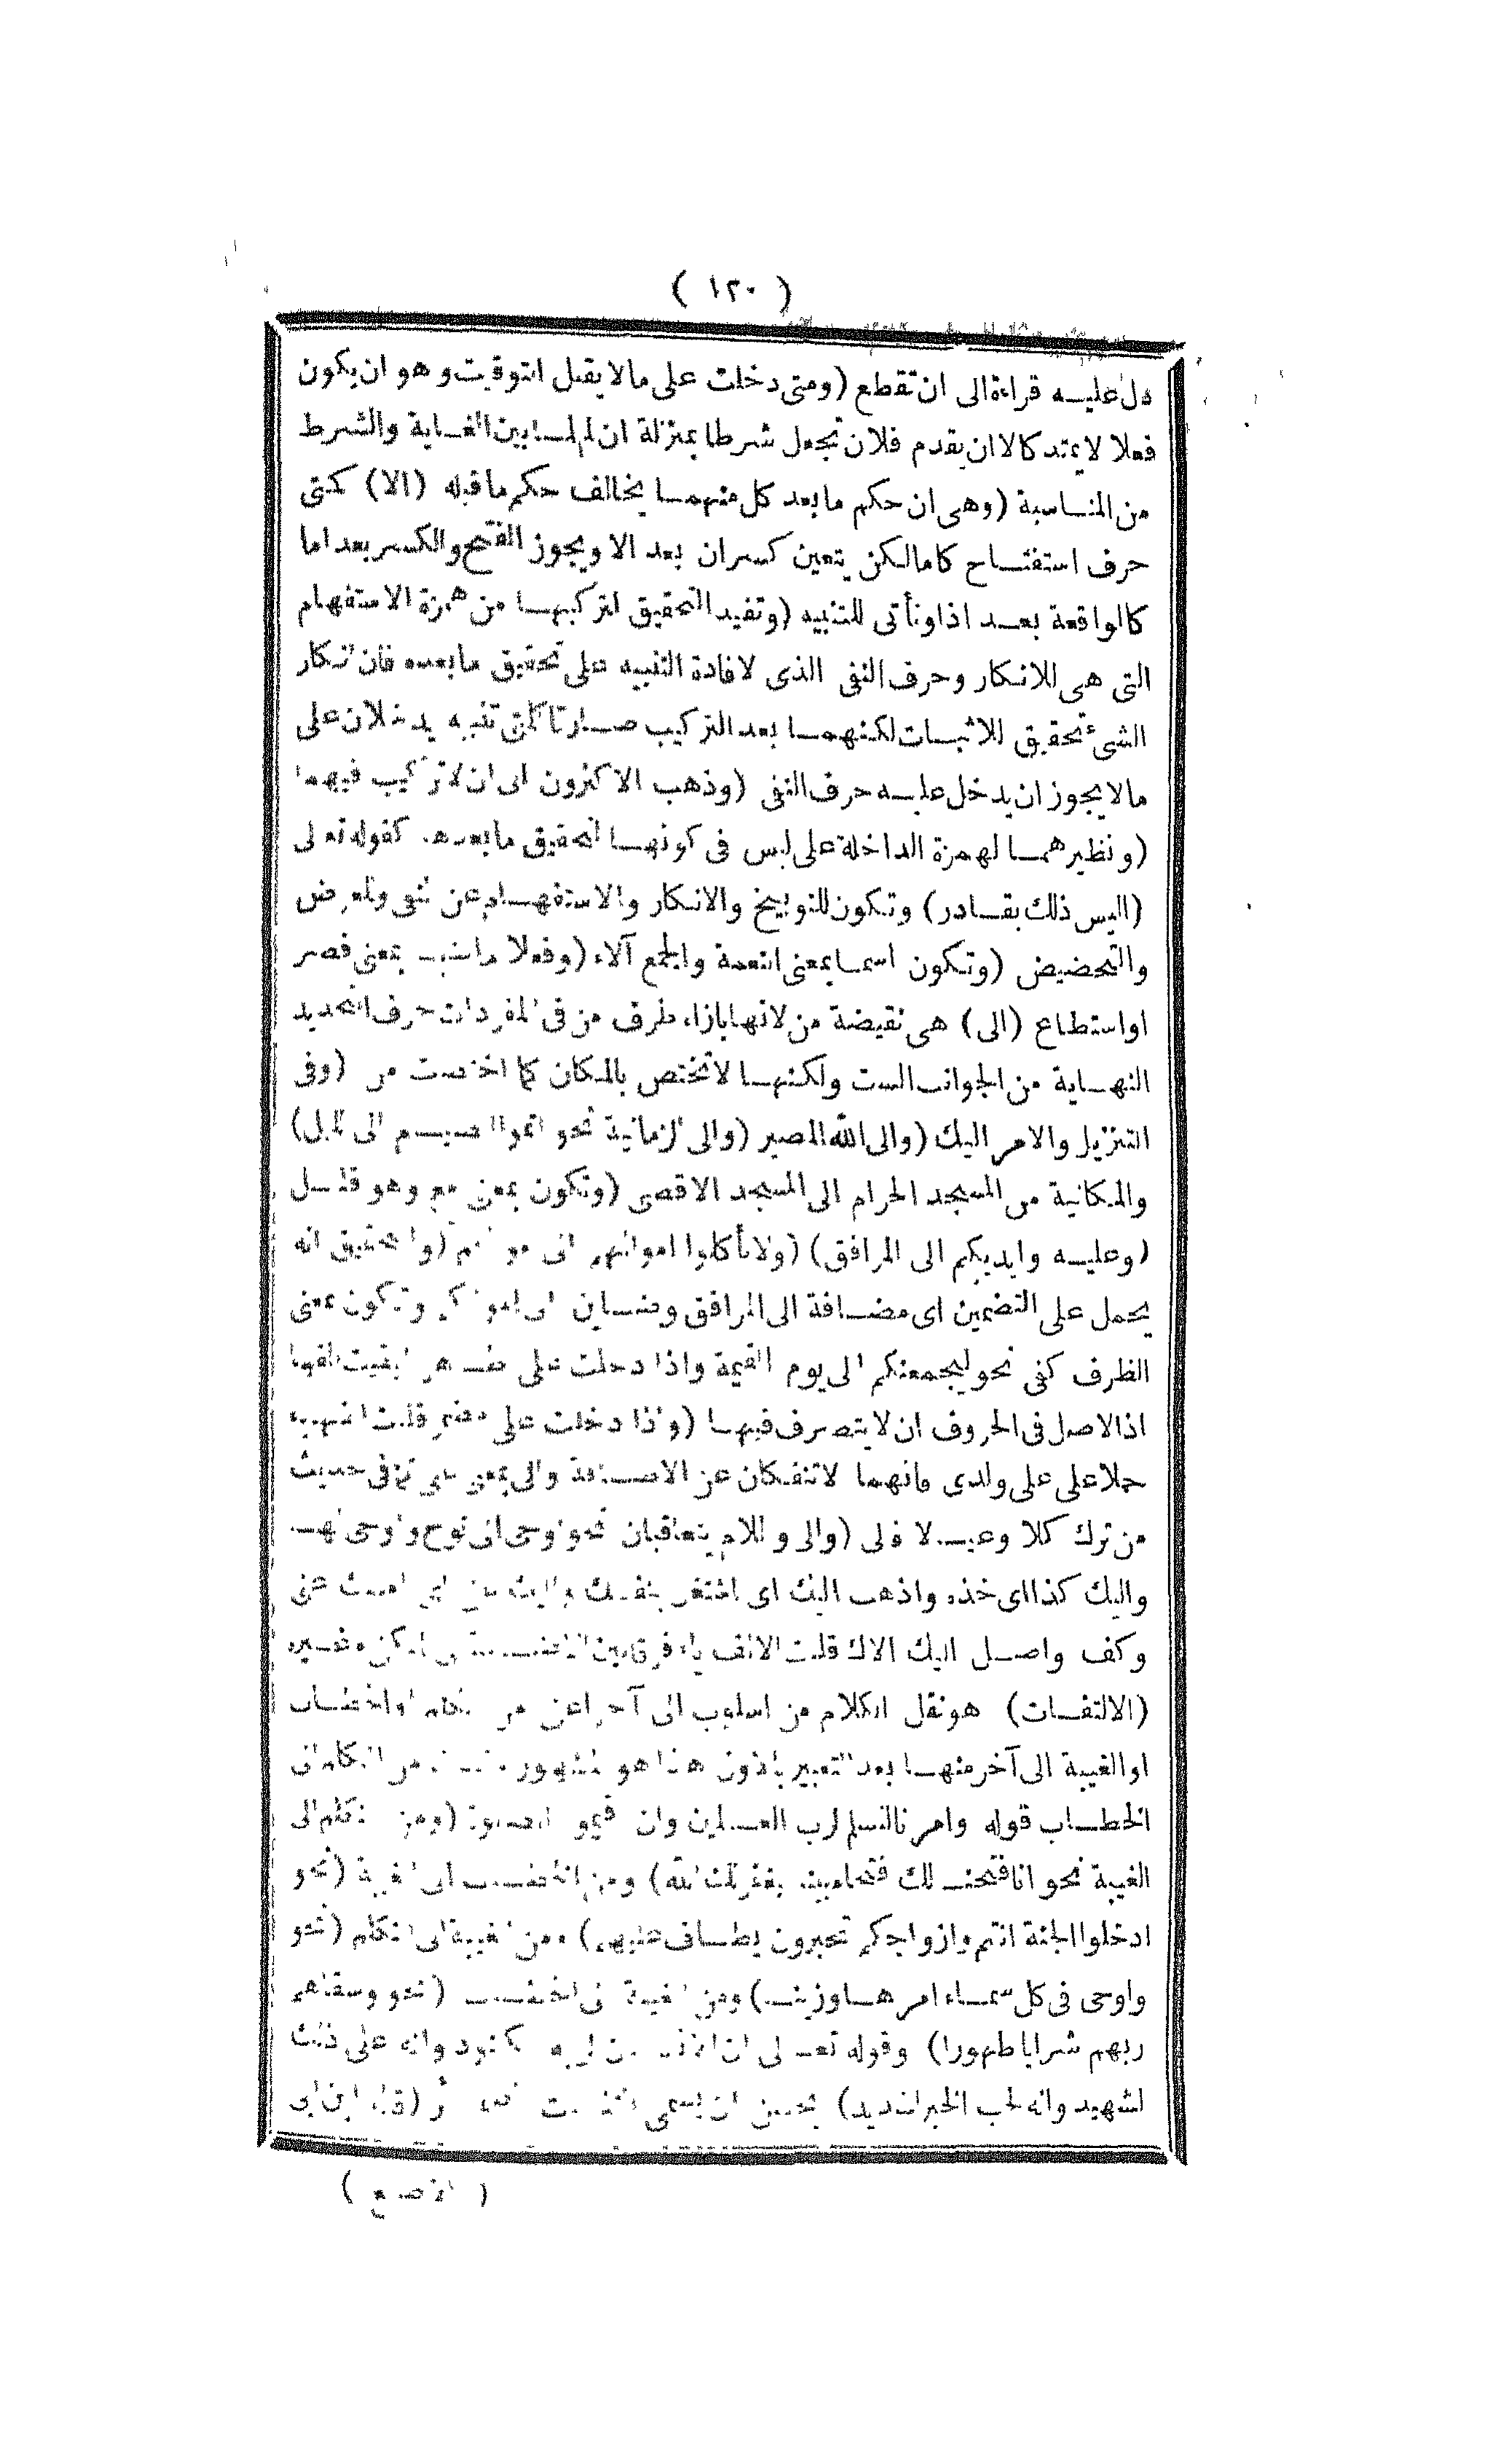 ( ١٢٠ )
دل عليه قراءة الى ان تقطع (ومتى دخلت على ما لا يقبل التوقيت وهو ان يكون
فعلا لا يمتد كالا ان يقدم فلان تجعل شرطا بمنزلة ان لما بين الغاية والشرط
من المناسبة (وهى ان حكم ما بعد كل منهما يخالف حكم ما قبله (الا) كتى
حرف استفتاح كاما لكن يتعين كسر ان بعد الا ويجوز الفتح والكسر بعد اما
كالواقعة بعد اذا وتأتى للتنبيه (وتفيد التحقيق لتركيبها من همزة الاستفهام
التى هى للانكار وحرف النفى الذى لافادة التنبيه على تحقيق ما بعده فان انكار
الشئ تحقيق للاثبات لكنهما بعد التركيب صارتا كلمتى تنبيه يدخلان على
ما لا يجوز ان يدخل عليه حرف النفى (وذهب الاكثرون الى ان لا تركيب فيهما
(ونظيرهما الهمزة الداخلة على ليس فى كونها لتحقيق ما بعدها كقوله تعالى
(اليس ذلك بقادر) وتكون للتوبيخ والانكار والاستفهام عن النفى وللعرض
والتحضيض (وتكون اسما بمعنى النعمة والجمع آلاء (وفعلا ماضيا بمعنى قصر
او استطاع (الى) هى نقيضة من لانها بازاء طرف من فى المفردات حرف لتحديد
النهاية من الجوانب الست ولكنها لا تختص بالمكان كما اختصت من (وفى
التنزيل والامر اليك (والى الله المصير (والى الزمانية نحو اتموا الصيام الى الليل)
والمكانية من المسجد الحرام الى المسجد الاقصى (وتكون بمعنى مع وهو قليل
(وعليه وايديكم الى المرافق) (ولا تأكلوا اموالهم الى اموالكم (والتحقيق انه
يحمل على التضمين اى مضافة الى المرافق وضامين الى اموالكم وتكون بمعنى
الظرف كفى نحو ليجمعنكم الى يوم القيمة واذا دخلت على ظاهر ابقيت الفها
اذ الاصل فى الحروف ان لا يتصرف فيها (واذا دخلت على مضمر قلبت الفها ياء
حملا على على ولدى فانهما لا تنفكان عن الاضافة والى بمعنى على فى حديث
من ترك كلا وعيالا فالى (والى واللام يتعاقبان نحو واوحى الى نوح واوحى لها
واليك كذا اى خذه واذهب اليك اى اشتغل بنفسك واليك عنى اى امسك عنى
وكف واصل اليك الاك قلبت الالف ياء فرقا بين الاضافة
(الالتفات) هو نقل الكلام من اسلوب الى آخر اعنى من التكلم او الخطاب
او الغيبة الى آخر منها بعد التعبير بالاول هذا هو المشهور من التكلم الى
الخطاب قوله وامرنا لنسلم لرب العالمين وان اقيموا الصلوة (ومن التكلم الى
الغيبة نحو انا فتحنا لك فتحا مبينا ليغفر لك الله) ومن الخطاب الى الغيبة (نحو
ادخلوا الجنة انتم وازواجكم تحبرون يطاف عليهم) ومن الغيبة الى التكلم (نحو
واوحى فى كل سماء امرها وزينا) ومن الغيبة الى الخطاب (نحو وسقاهم
ربهم شرابا طهورا) وقوله تعالى ان الانسان لربه لكنود وانه على ذلك
لشهيد وانه لحب الخير لشديد) يحسن ان يسمى التفات الضمائر (قاله ابن ابى
( الاصبع )